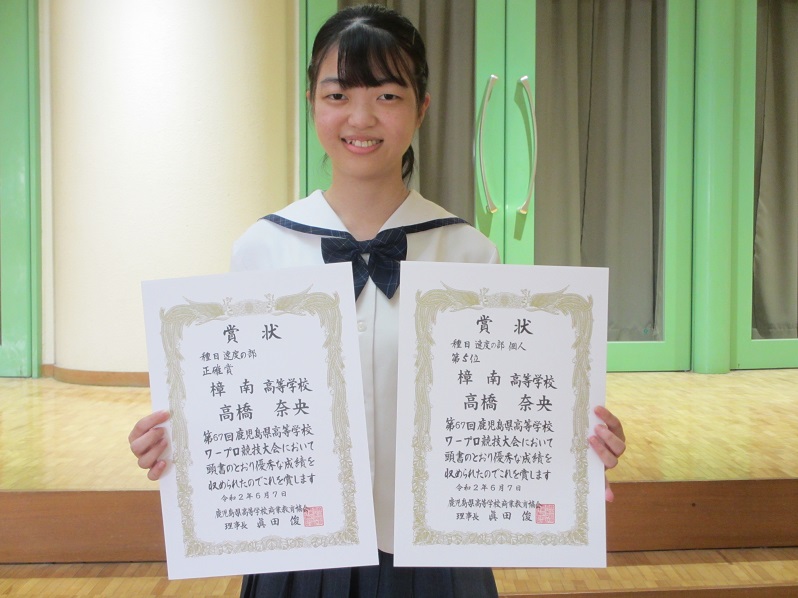 賞状
種目 速度の部
正確賞
樟南 高等学校
高橋 奈央
第67回鹿児島県高等学校
ワープロ競技大会において
頭書のとおり優秀な成績を
収められたのでこれを賞します
令和2年6月7日
鹿児島県高等学校商業教育協会
理事長 眞田 俊
賞状
種目 速度の部 個人
第5位
樟南 高等学校
高橋 奈央
第67回鹿児島県高等学校
ワープロ競技大会において
頭書のとおり優秀な成績を
収められたのでこれを賞します
令和2年6月7日
鹿児島県高等学校商業教育協会
理事長 眞田 俊